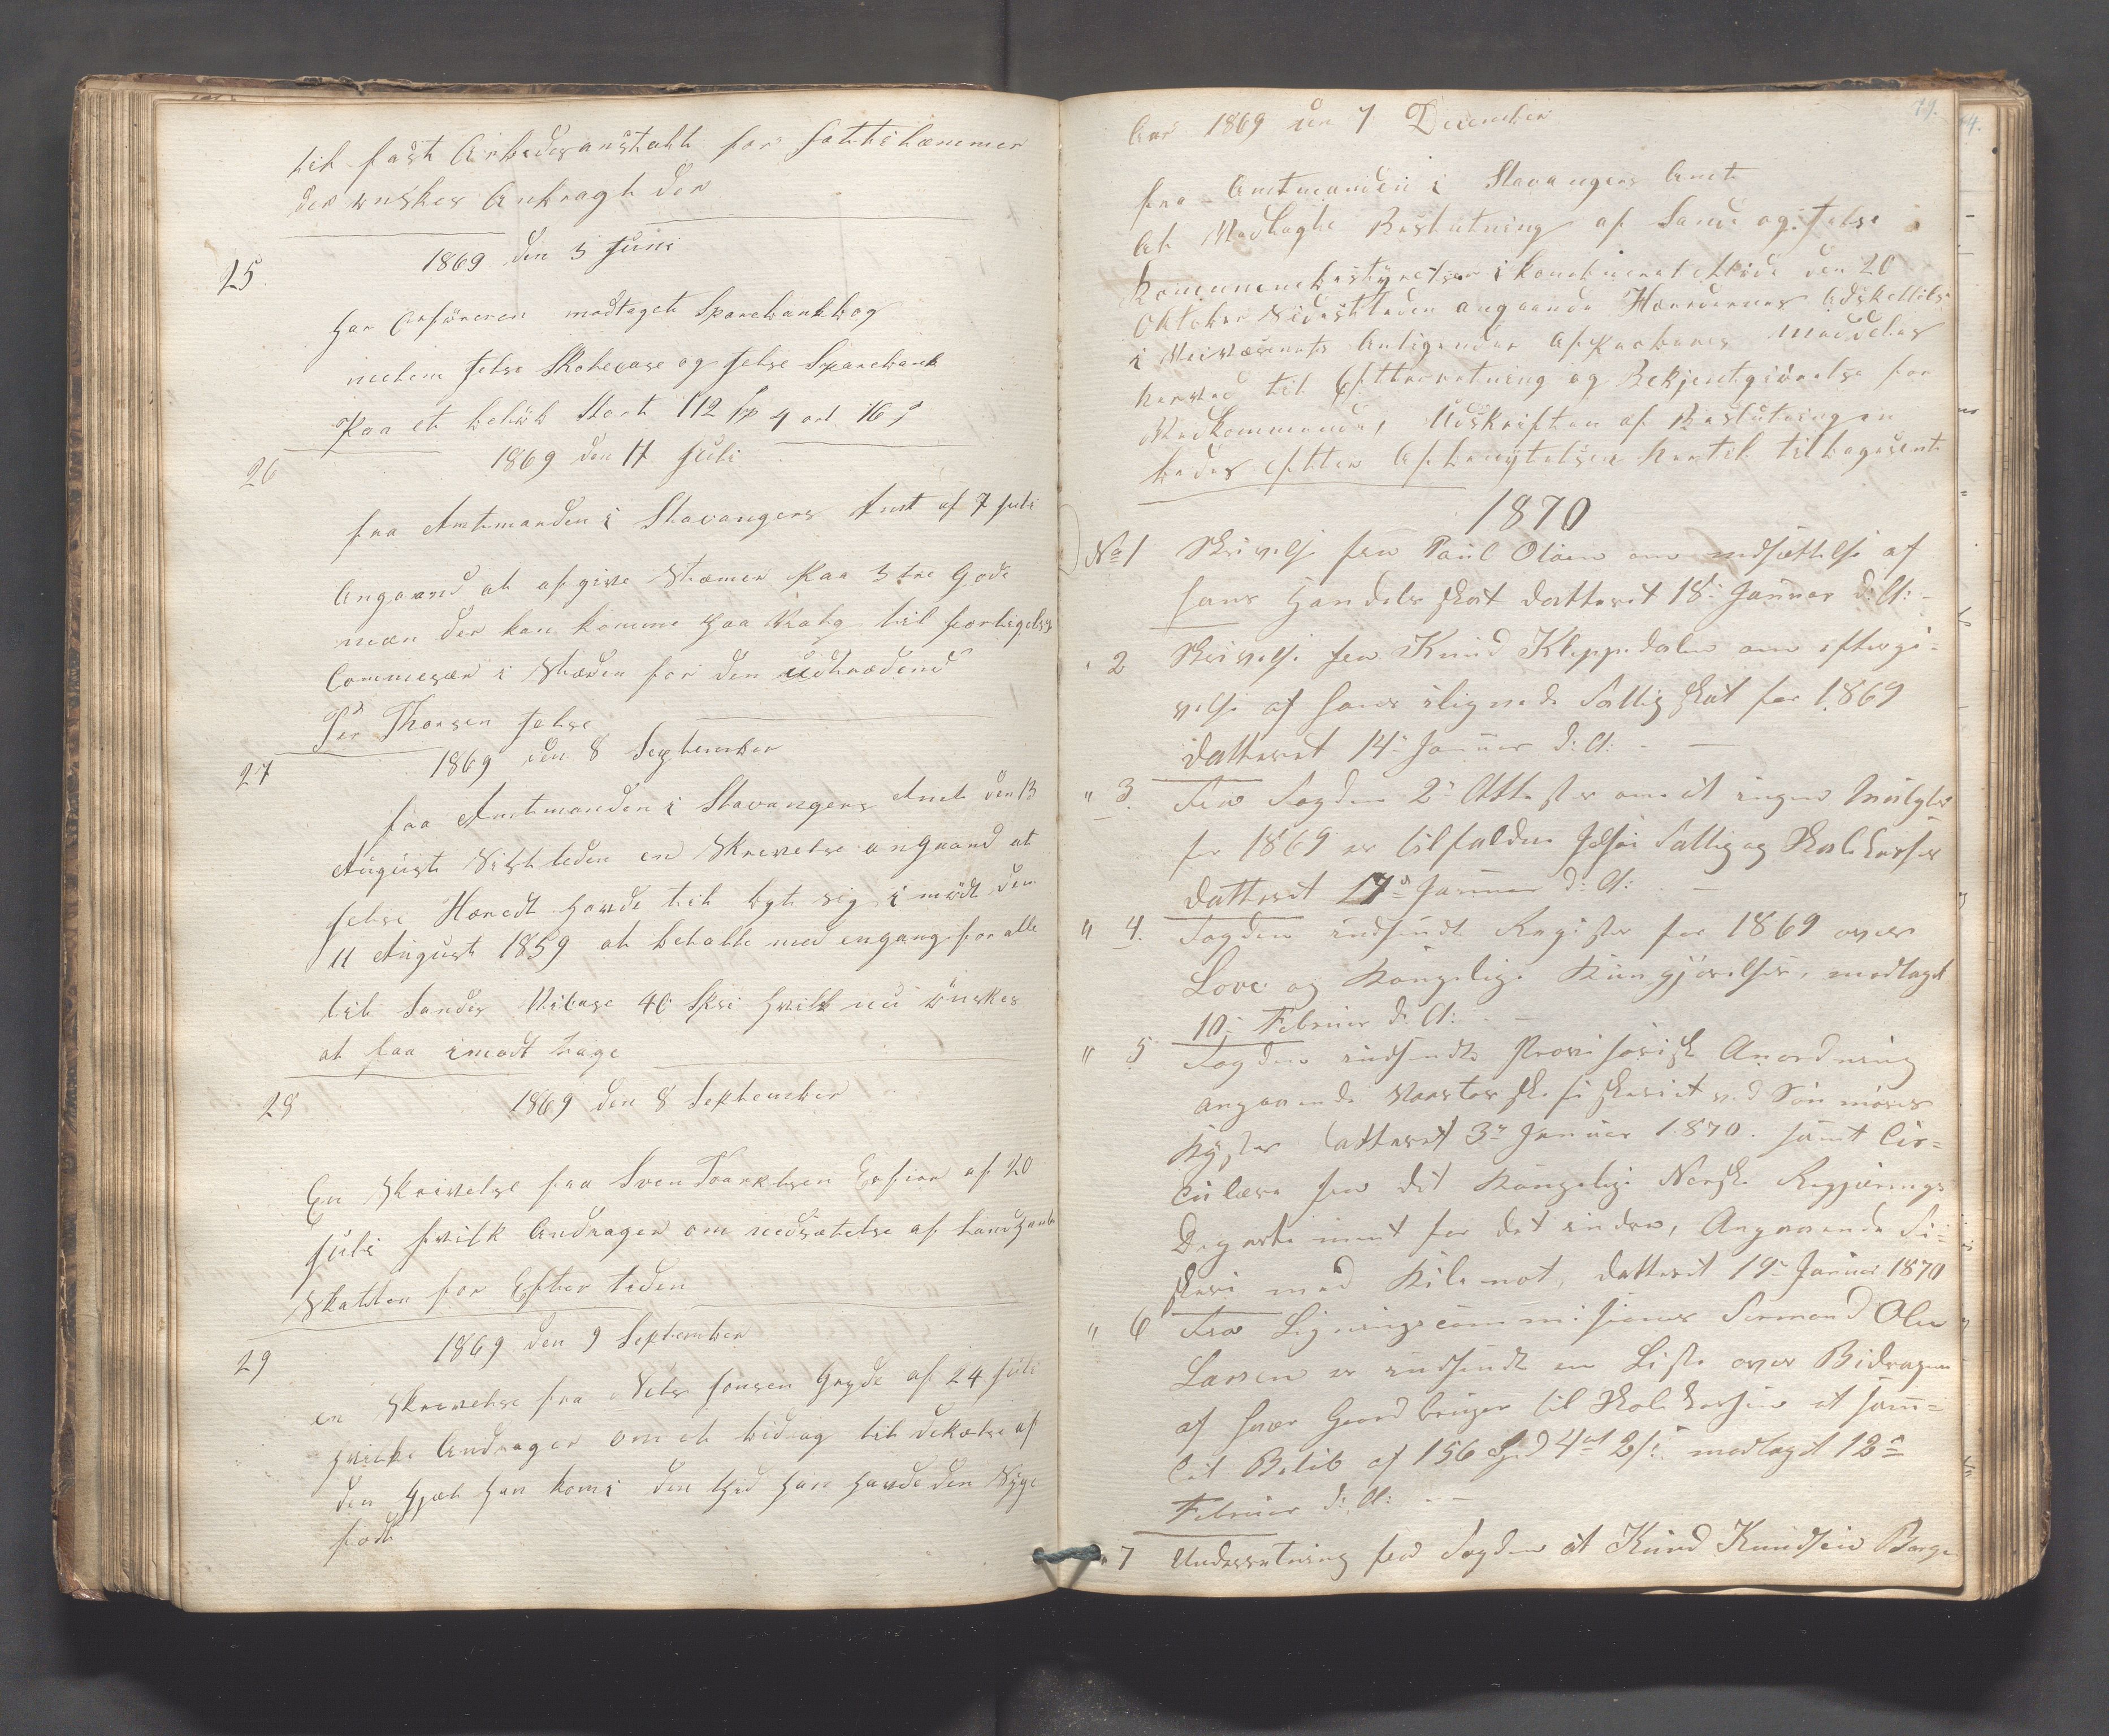 til fast Arbedsanstalt for fattilæmmer
der ønskes Anbragt der
25
1869 den 3 Juni
Har Orføreren modtaget Sparebankbog
melem Jelse Skolecase og Jelse Sparebank
Paa et beløb Stort 112 Sp 4 ort 16 s
26
1869 den 11 Juli
fra Amtmanden i Stavangers Amt af 7 Juli
Angaand at afgive Stæmer Paa 3 tre Gode
mæn der kan komme paa Valg til forligelses
Commesær i Stæden for den udtrædend
Per Thorsen Jelse
27
1869 den 8 September
fra Amtmanden i Stavangers Amt den 13
August Sistleden en Skrevelse angaand at
Jelse Hæredt Havde til byt sig i mødt den
11 August 1859 at betalte med engang for alle
til Sandes Vicase 40 Spsi Hvilk nu ønskes
at faa imodt tage
28
1869 den 8 September
En Skrivelse fra Sven Erfior af 20
Juli Hvilk Andrager om nedsætelse af Landhand
Skatten for Efter teden
29
1869 den 9 September
en Skrevelse fra Nels Jonsen Gryde af 24 Juli
Hvilke Andrager om et bidrag til dekætse af
den Gjæl Han kom i den tid Han Havde den Syge
fodt
79.
Aar 1869 den 7 December
fra Amtmanden i Stavangers Amt
At Modtaghe Beslutning af Sande og Jelse
Kommunebestyrelser i kombineret Møde den 20
Oktober Sidestleden angaaende Hæredernes Adskellelse
i Veivæsenets Anligender Afparberes Meddeles
herved til Efterretning og Bekjentgiørelse for
Vedkommende, Udskriften af Beslutningen
bedes efter Afbenytelsen hertil tilbagesent
1870
No 1 Skrivelse fra Paul Olsen om nedsættelse af
hans Handels skat datteret 18 Januar d: A: -
" 2 Skrivelse fra Knud Kleppedalen om eftergi-
velse af hans ilignede Fattigskat for 1869
datteret 14 Januar d: A: -
" 3 Fra Fogden 2 Attester om at ingen Mulgter
for 1869 er tilfalden Jelse Fattig og Skolekasser
datteret 17 Januar d: A: -
" 4. Fogden indsendt Register for 1869 over
Love og Kongelige Kungjørelser, modtaget
10 Februar d: A: -
" 5 Fogden indsendte Provisorisk Anordning
angaaende Vaartorskefiskeriet ved Søn møres
Kyster datteret 3 Januar 1870. samt Cir=
culære fra det Kongelige Norske Regjerings
Departement for det indre, Angaaende Fi-
skeri med Kilenot, datteret 19 Januar 1870
" 6 Fra Ligningscommisionens Formand Ole
Larsen er indsendt en Liste over Bidragene
af hver Gaardbruger til Skolekassen et sam=
let Beløb af 156 Spd 4 ort 2 s: modtaget 12
Februar d: A: -
" 7 Underretning fra Fogden at Knud Knudsen Borge